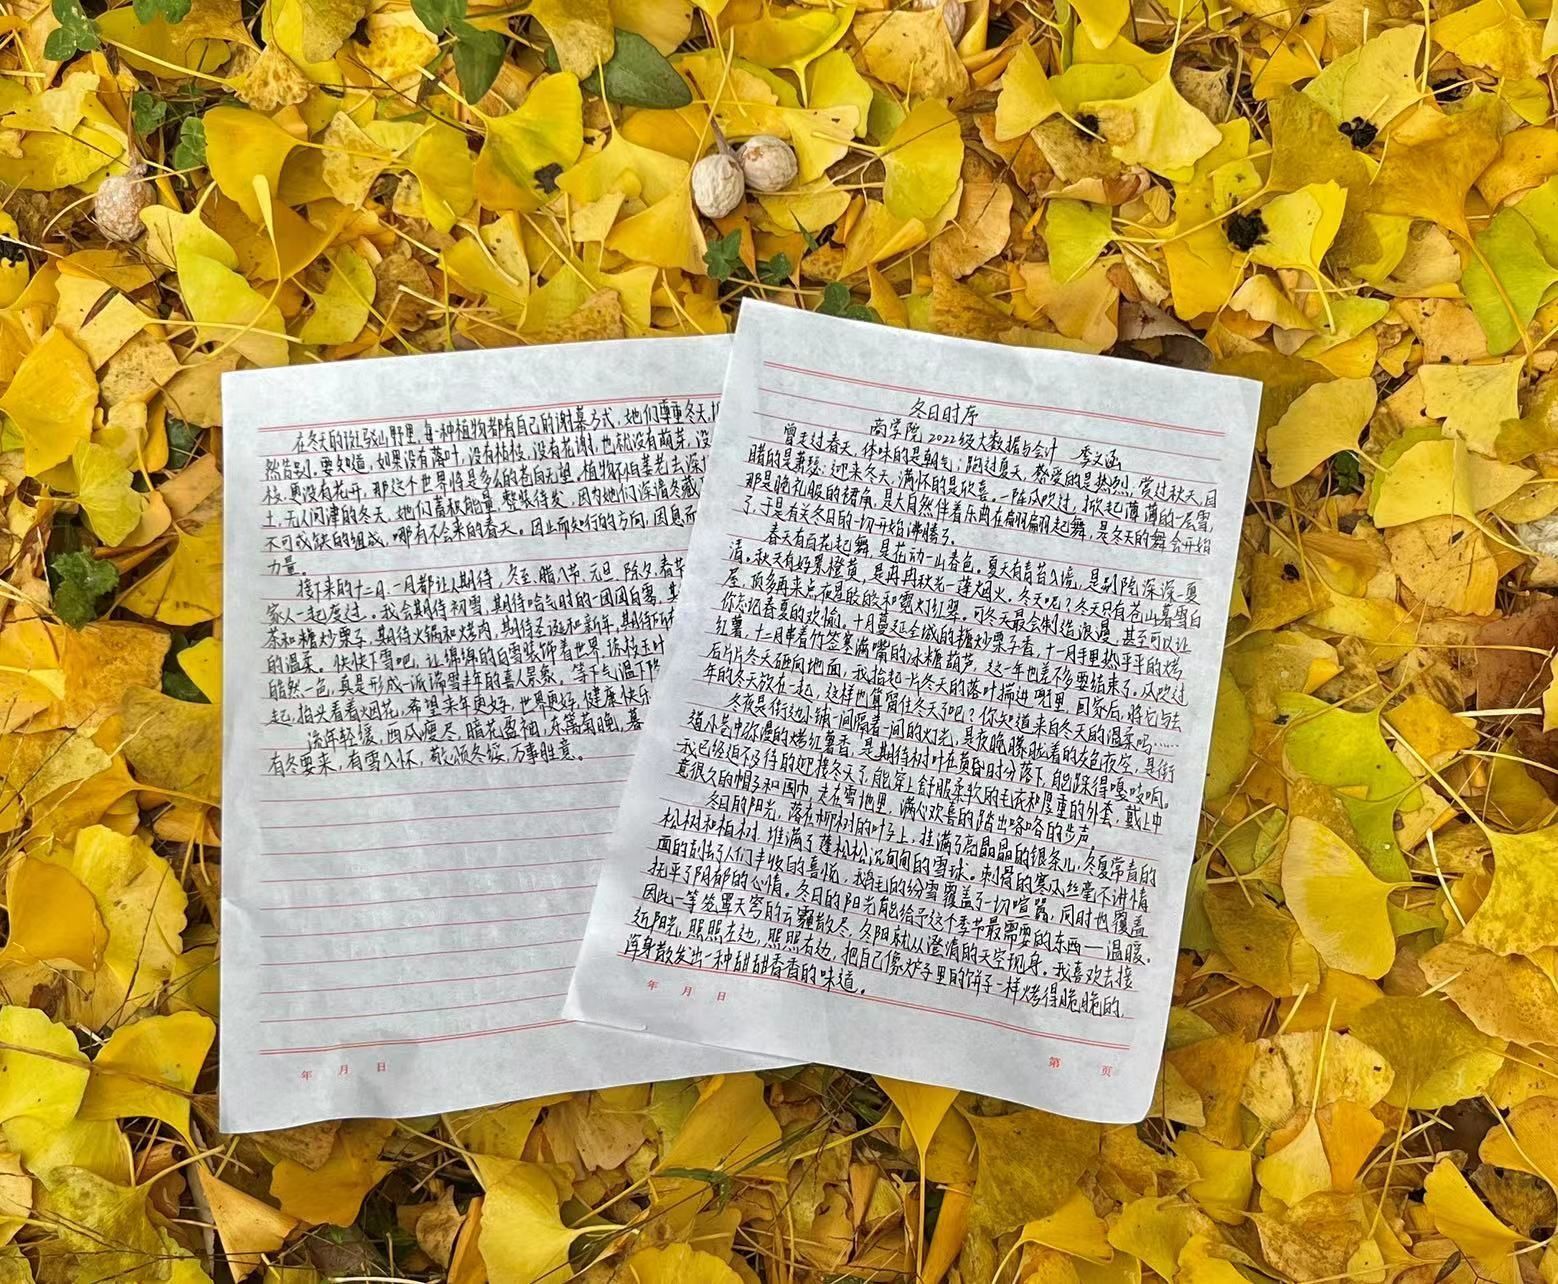 冬日时序
商学院 2022级大数据与会计 季文涵
曾走过春天，体味的是朝气；跑过夏天，热爱的是热烈；赏过秋天，目
睹的是萧瑟；迎来冬天，满怀的是欣喜。一阵风吹过，掀起薄薄的一层雪，
那是晚礼服的裙角，是大自然伴着乐曲在翩翩起舞，是冬天的舞会开始
了，于是有关冬日的一切开始沸腾了。
春天有百花起舞，是花动一山春色。夏天有青苔入境，是别院深深夏
清。秋天有好景橙黄，是冉冉秋光一蓬烟火。冬天呢？冬天只有苍山暮雪白
屋，顶多再来点夜星皎皎和霓火红翠。可冬天最会制造浪漫，甚至可以让
你忘记春夏的欢愉。十月蔓延全城的糖炒栗子香，十一月手里热乎乎的烤
红薯，十二月串着竹签塞满嘴的冰糖葫芦，这一年也差不多要结束了。风吹过
后片片冬天砸向地面，我拾起一片冬天的落叶揣进兜里，回家后，将它与去
年的冬天放在一起，这样也算留住冬天了吧？你知道来自冬天的温柔吗……
冬夜是街边小铺一间隔着一间的灯光，是夜晚朦胧着的灰色夜空，是街
道小巷中弥漫的烤红薯香，是期待树叶在黄昏时分落下，能踩得嘎吱响。
我已经迫不及待的迎接冬天了，能穿上舒服柔软的毛衣和厚重的外套，戴上中
意很久的帽子和围巾，走在雪地里，满心欢喜的踏出咯咯的步声。
冬日的阳光，落在柳树的叶子上，挂满了亮晶晶的银条儿；冬夏常青的
松树和柏树，堆满了蓬松松沉甸甸的雪球。刺骨的寒风丝毫不讲情
面的刮去了人们丰收的喜悦，鹅毛的纷雪覆盖了一切喧嚣，同时也覆盖
托平了阴郁的心情。冬日的阳光能给予这个季节最需要的东西——温暖。
因此一等笼罩天穹的云霾散尽，冬阳就从澄清的天空现身。我喜欢去接
近阳光，照照左边，照照右边，把自己像炉子里的饼子一样烤得脆脆的，
浑身散发出一种甜甜香香的味道。
年 月 日
第 页
在冬天的山野里，每一种植物都有自己的谢幕方式，她们尊重冬天，
然告别。要知道，如果没有落叶，没有枯枝，没有花谢，也就没有萌芽，没
枝，更没有花开，那这个世界将是多么的苍白无望。植物不怕萎老去深
土，无人问津的冬天，她们蓄积能量，整装待发，因为她们深谙冬藏
不可或缺的组成，哪有不会来的春天。因止而知行的方向，因息而
力量。
接下来的十二月、一月都让人期待，冬至、腊八节、元旦、除夕、春节
家人一起度过。我会期待初雪，期待哈气时的一团团白雾，
茶和糖炒栗子，期待火锅和烤肉，期待圣诞和新年，期待所有
的温柔。快快下雪吧，让绵绵的白雪装饰着世界，琼枝玉叶
皓然一色，真是形成一派瑞雪丰年的喜人景象。等下气温下降
起，抬头看看烟花，希望来年更好，世界更好，健康快乐
流年轻缓，西风瘦尽，暗花盈袖，东篱菊晚，暮
有冬要来，有雪入怀，敬颂冬绥，万事胜意。
年 月 日